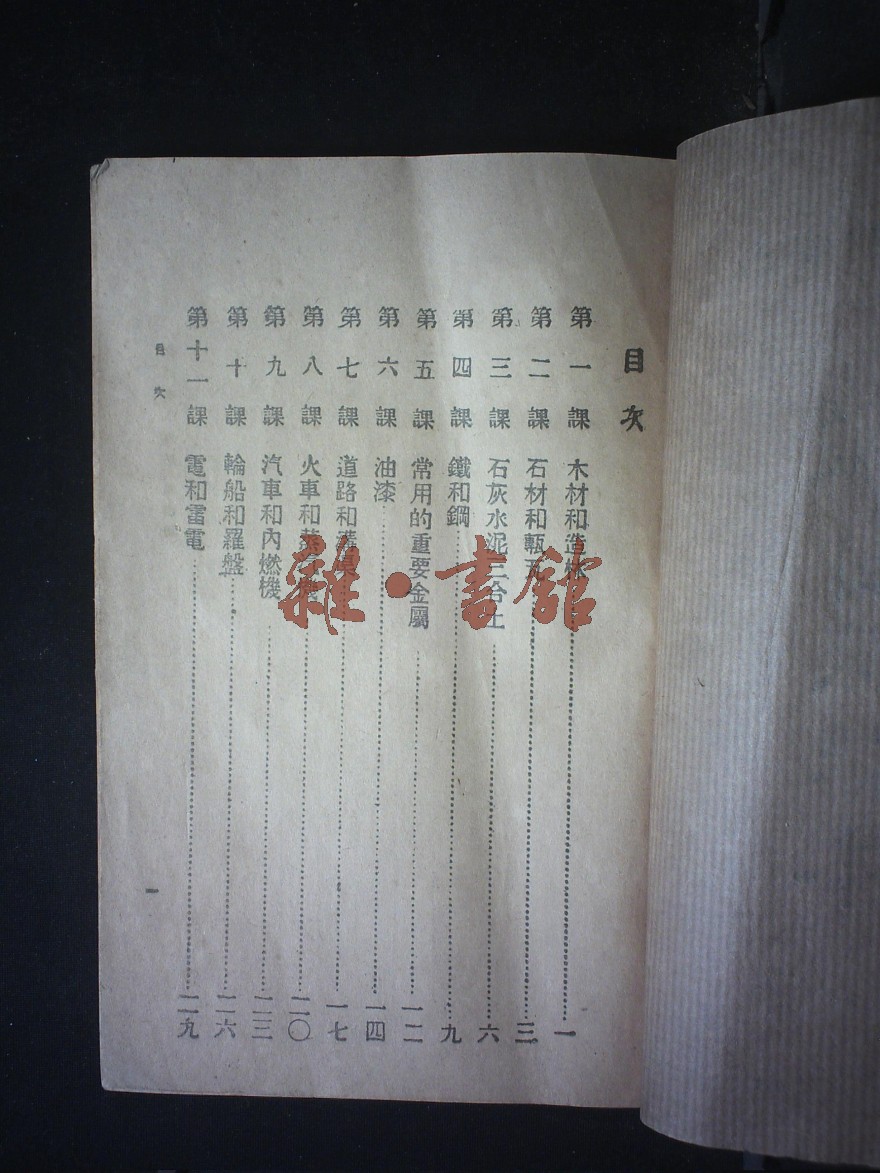 目次
第一課 木材和造林 一
第二課 石材和甎瓦 三
第三課 石灰水泥三合土 六
第四課 鐵和鋼 九
第五課 常用的重要金屬 一二
第六課 油漆 一四
第七課 道路和 一七
第八課 火車和蒸汽機 二〇
第九課 汽車和內燃機 二三
第十課 輪船和羅盤 二六
第十一課 電和雷電 二九
目次
一
雜·書館